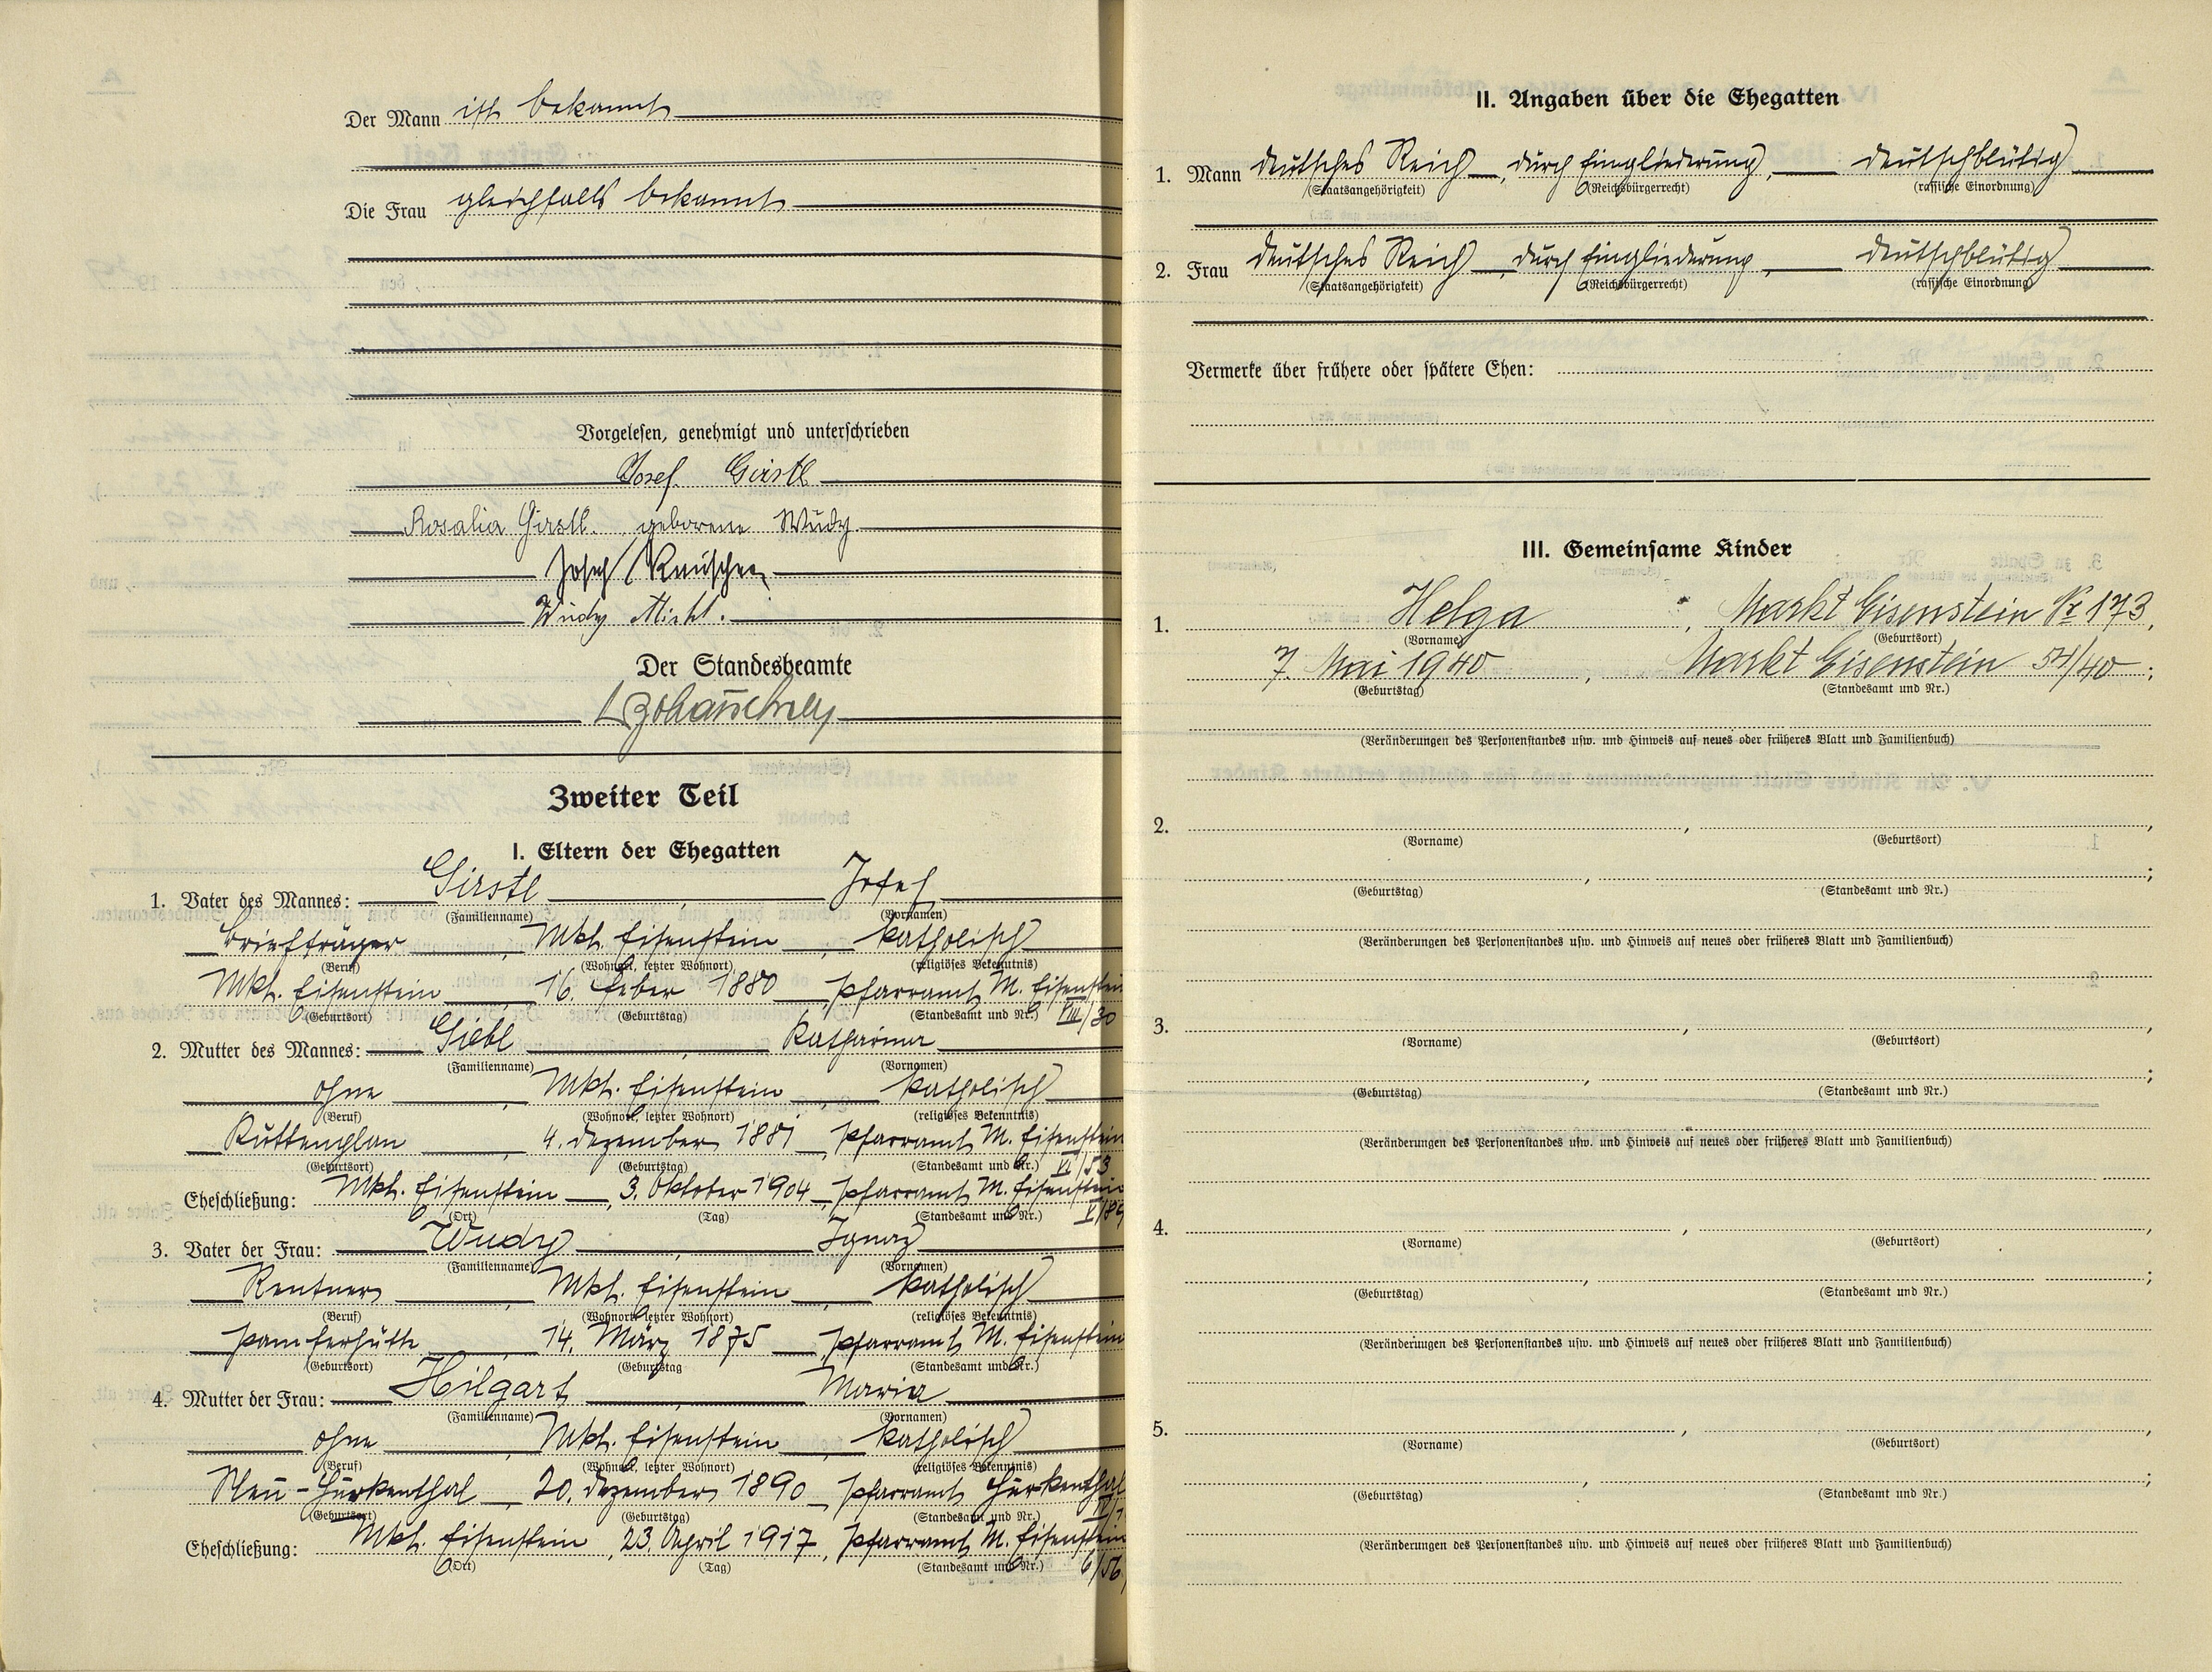 Der Mann ist bekannt
Die Frau gleichfalls bekannt
Vorgelesen, genehmigt und unterschrieben
Josef Girstl
Rosalia Girstl. geborene Wudy.
Josef
Wudy Michl.
Der Standesbeamte
Zweiter Teil
I. Eltern der Ehegatten
1. Vater des Mannes: Girstl, Josef
(Familienname) (Vornamen)
Briefträger, Mkt. Eisenstein, katholisch
(Beruf) (Wohnort, letzter Wohnort) (religiöses Bekenntnis)
Mkt. Eisenstein, 16. Feber 1880, Pfarramt M. Eisenstein
(Geburtsort) (Geburtstag) (Standesamt und Nr.) VIII/30
2. Mutter des Mannes: Giebl, Katharina
(Familienname) (Vornamen)
ohne, Mkt. Eisenstein, katholisch
(Beruf) (Wohnort, letzter Wohnort) (religiöses Bekenntnis)
4. Dezember 1881, Pfarramt M. Eisenstein
(Geburtsort) (Geburtstag) (Standesamt und Nr.) VI/53
Eheschließung: Mkt. Eisenstein, 3. Oktober 1904, Pfarramt M. Eisenstein
(Ort) (Tag) (Standesamt und Nr.)
3. Vater der Frau: Wudy, Ignaz
(Familienname) (Vornamen)
Rentner, Mkt. Eisenstein, katholisch
(Beruf) (Wohnort letzter Wohnort) (religiöses Bekenntnis)
Pamferhütte, 14. März 1875, Pfarramt M. Eisenstein
(Geburtsort) (Geburtstag (Standesamt und Nr.)
4. Mutter der Frau: Hilgart, Maria
(Familienname) (Vornamen)
ohne, Mkt. Eisenstein, katholisch
(Beruf) (Wohnort, letzter Wohnort) (religiöses Bekenntnis)
Neu-Hurkenthal, 20. Dezember 1890, Pfarramt Hurkenthal
(Geburtsort) (Geburtstag) (Standesamt und Nr.)
Eheschließung: Mkt. Eisenstein, 23. April 1917, Pfarramt M. Eisenstein
(Ort) (Tag) (Standesamt und Nr.) 6/56
II. Angaben über die Ehegatten
1. Mann deutsches Reich, durch Eingliederung, deutschblütig
(Staatsangehörigkeit) (Reichsbürgerrecht) (rassische Einordnung)
2. Frau deutsches Reich, durch Eingliederung, deutschblütig
(Staatsangehörigkeit) (Reichsbürgerrecht) (rassische Einordnung)
Vermerke über frühere oder spätere Ehen:
III. Gemeinsame Kinder
1. Helga, Markt Eisenstein Nr 173,
(Vorname) (Geburtsort)
7. Mai 1940, Markt Eisenstein 54/40;
(Geburtstag) (Standesamt und Nr.)
(Veränderungen des Personenstandes usw. und Hinweis auf neues oder früheres Blatt und Familienbuch)
2. , ,
(Vorname) (Geburtsort)
, ;
(Geburtstag) (Standesamt und Nr.)
(Veränderungen des Personenstandes usw. und Hinweis auf neues oder früheres Blatt und Familienbuch)
3. , ,
(Vorname) (Geburtsort)
, ;
(Geburtstag) (Standesamt und Nr.)
(Veränderungen des Personenstandes usw. und Hinweis auf neues oder früheres Blatt und Familienbuch)
4. , ,
(Vorname) (Geburtsort)
, ;
(Geburtstag) (Standesamt und Nr.)
(Veränderungen des Personenstandes usw. und Hinweis auf neues oder früheres Blatt und Familienbuch)
5. , ,
(Vorname) (Geburtsort)
, ;
(Geburtstag) (Standesamt und Nr.)
(Veränderungen des Personenstandes usw. und Hinweis auf neues oder früheres Blatt und Familienbuch)